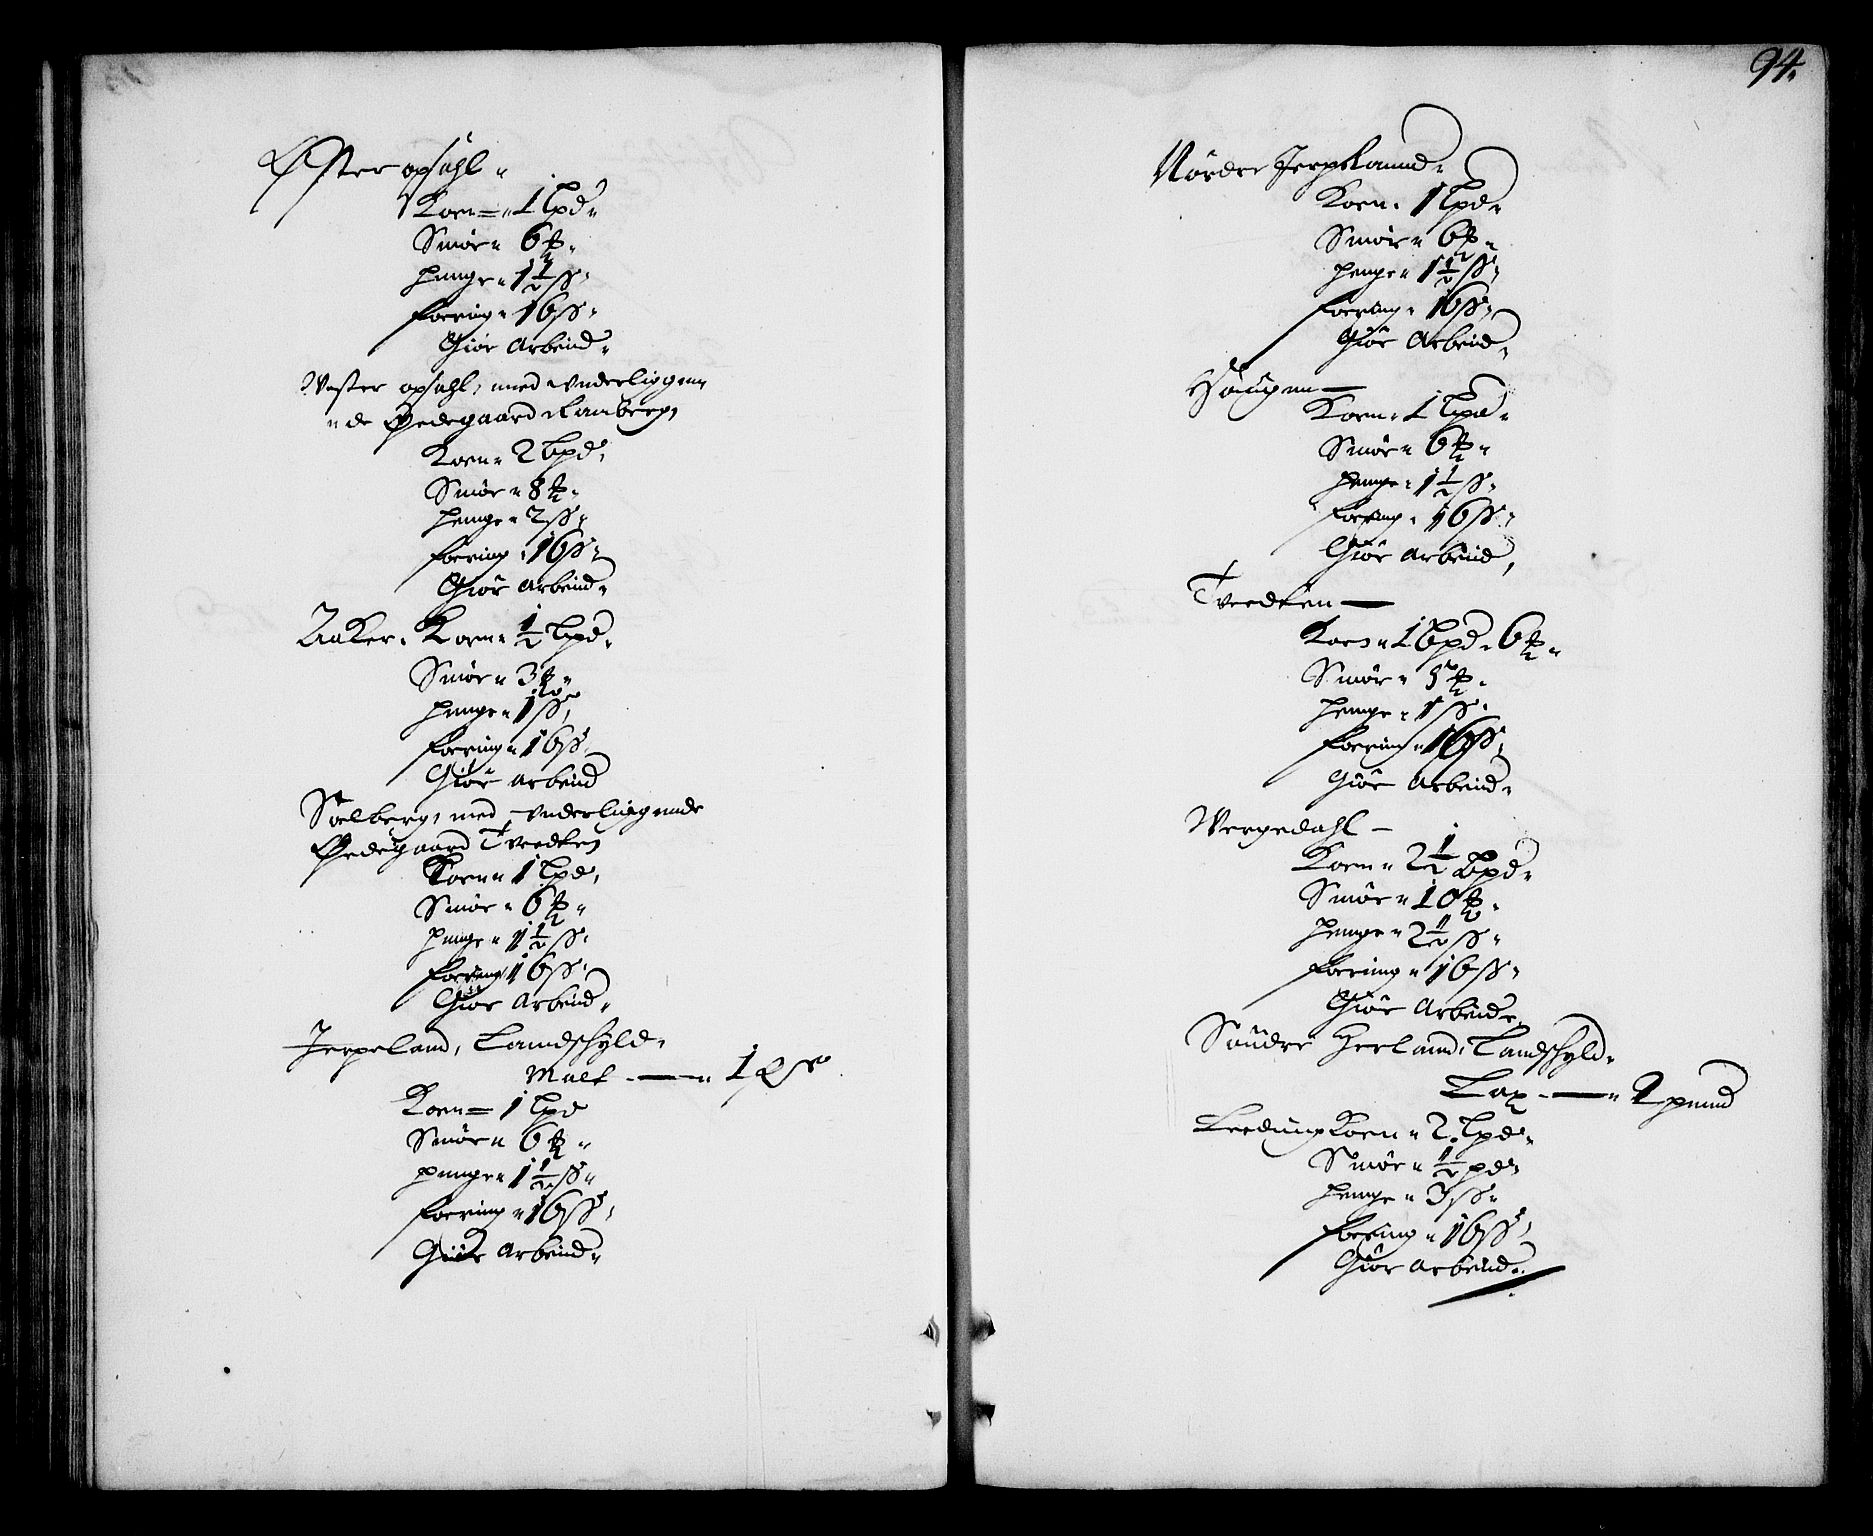 Øster opsahl
Koen = 1 lpd
Smør 6 ℔
penge 1½ ss
foering 16 ss
Giør Arbeid
Wester opsahl, med underliggen
de Ødegaard Ramberg
Koen 2 lpd
Smør 8 ℔
penge 2 ss
foering 16 ss
Giør Arbeid
Aaker. Koen ½ lpd
Smør 3 ℔
penge 1 ss
foering 16 ss
Giør Arbeid
Soelberg, med underliigende
Ødegaard Tvedten
Koen 1 lpd
Smør 6 ℔
penge 1½ ss
foering 16 ss
Giør Arbeid
Jerpeland, Landschyld
Malt — 1
Koen = 1 lpd
Smør 6 ℔
penge 1½ ss
foering 16 ss
Giør Arbeid
94.
Nördre Jerpeland
Koen 1 lpd
Smör 6 ℔
penge 1½ ss
foering 16 ss
Giör Arbeid
Haugen —
Koen 1 lpd
Smör 6 ℔
penge 1½ ss
foering 16 ss
Giör Arbeid
Tvedten —
Koen 1 lpd 6 ℔
Smör 5 ℔
penge 1 ss
foering 16 ss
Giör Arbeid
Wergedahl —
Koen 2½ lpd
Smör 10 ℔
penge 2½ ss
foering 16 ss
Giör Arbeid
Söndre Herland, Landschyld
Lax — 2 pund
Leeding Koen 2 lpd
Smör ½ pd
penge 3 ss
foering 16 ss
Giör Arbeid